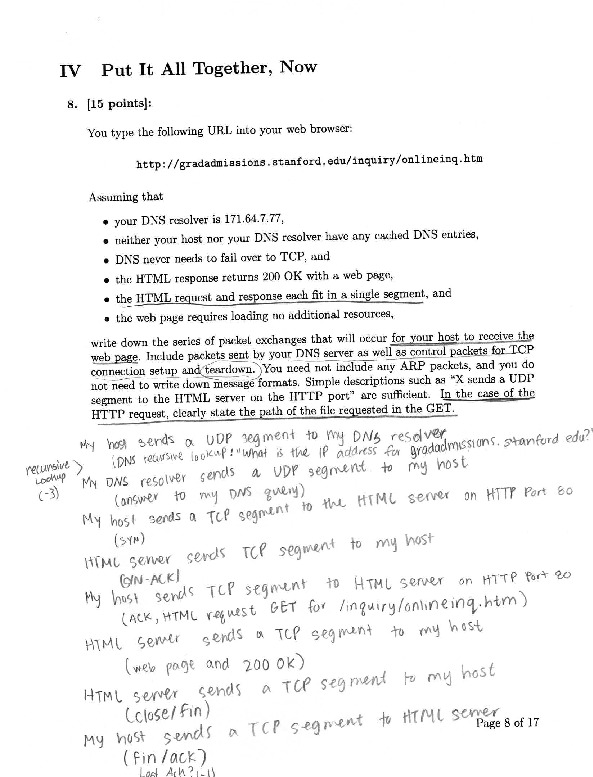 IV Put It All Together, Now
8. [15 points]:
You type the following URL into your web browser:
http://gradadmissions.stanford.edu/inquiry/onlineinq.htm
Assuming that
• your DNS resolver is 171.64.7.77,
• neither your host nor your DNS resolver have any cached DNS entries,
• DNS never needs to fail over to TCP, and
• the HTML response returns 200 OK with a web page,
• the HTML request and response each fit in a single segment, and
• the web page requires loading no additional resources,
write down the series of packet exchanges that will occur for your host to receive the
web page. Include packets sent by your DNS server as well as control packets for TCP
connection setup and teardown. You need not include any ARP packets, and you do
not need to write down message formats. Simple descriptions such as "X sends a UDP
segment to the HTML server on the HTTP port" are sufficient. In the case of the
HTTP request, clearly state the path of the file requested in the GET.
My host sends a UDP segment to my DNS resolver
(DNS recursive lookup: "what is the IP address for gradadmissions.stanford edu?"
recursive
lookup
(-3)
My DNS resolver sends a UDP segment to my host
(answer to my DNS query)
My host sends a TCP segment to the HTML server on HTTP Port 80
(SYN)
HTML server sends TCP segment to my host
(SYN-ACK)
My host sends TCP segment to HTML server on HTTP Port 80
(ACK, HTML request GET for /inquiry/onlineinq.htm)
HTML server sends a TCP segment to my host
(web page and 200 OK)
HTML server sends a TCP segment to my host
(close/fin)
My host sends a TCP segment to HTML server
Page 8 of 17
(fin/ack)
Last Ack? (-1)